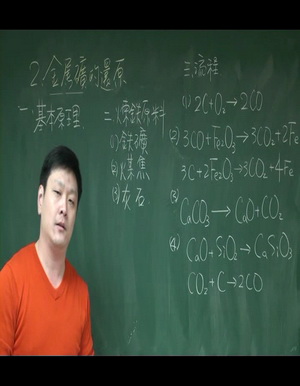 2.金屬礦的還原
一、基本原理
二、煉鐵原料
(1)鐵礦
(2)煤焦
(3)灰石
三、流程
(1) 2C+O₂→2CO
(2) 3CO+Fe₂O₃→3CO₂+2Fe
3C+2Fe₂O₃→3CO₂+4Fe
(3)
CaCO₃→CaO+CO₂
(4)
CaO+SiO₂→CaSiO₃
CO₂+C→2CO